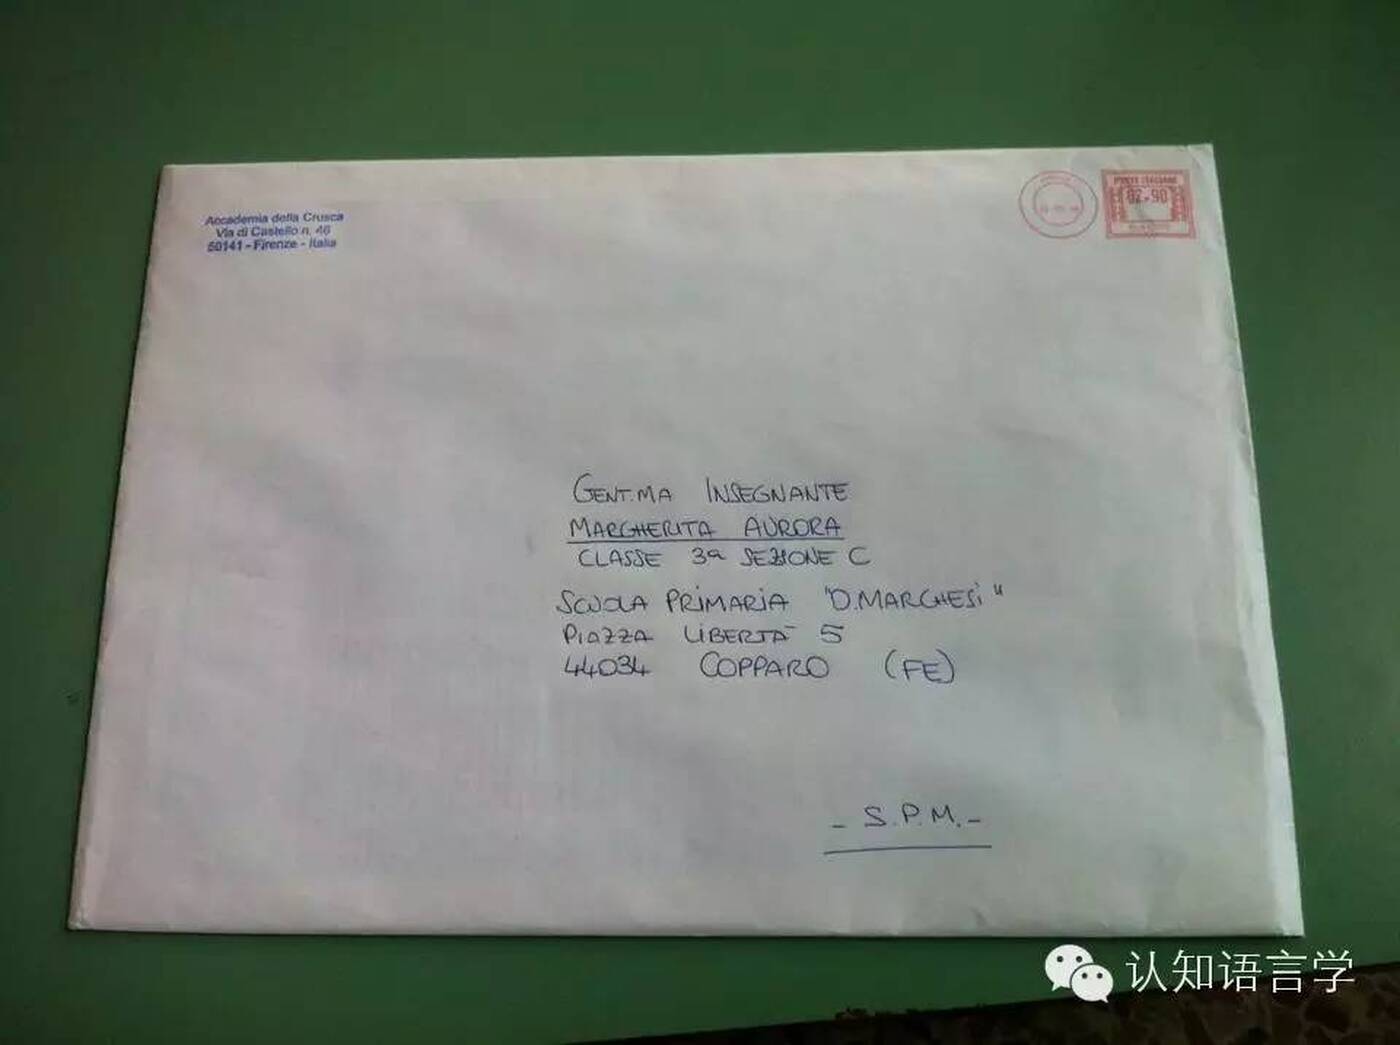 Accademia della Crusca
Via di Castello n. 46
50141 - Firenze - Italia
POSTE ITALIANE
02.90
GENT.MA INSEGNANTE
MARGHERITA AURORA
CLASSE 3ª SEZIONE C
SCUOLA PRIMARIA "O.MARCHESI"
PIAZZA LIBERTÀ 5
44034 COPPARO (FE)
- S.P.M. -
认知语言学